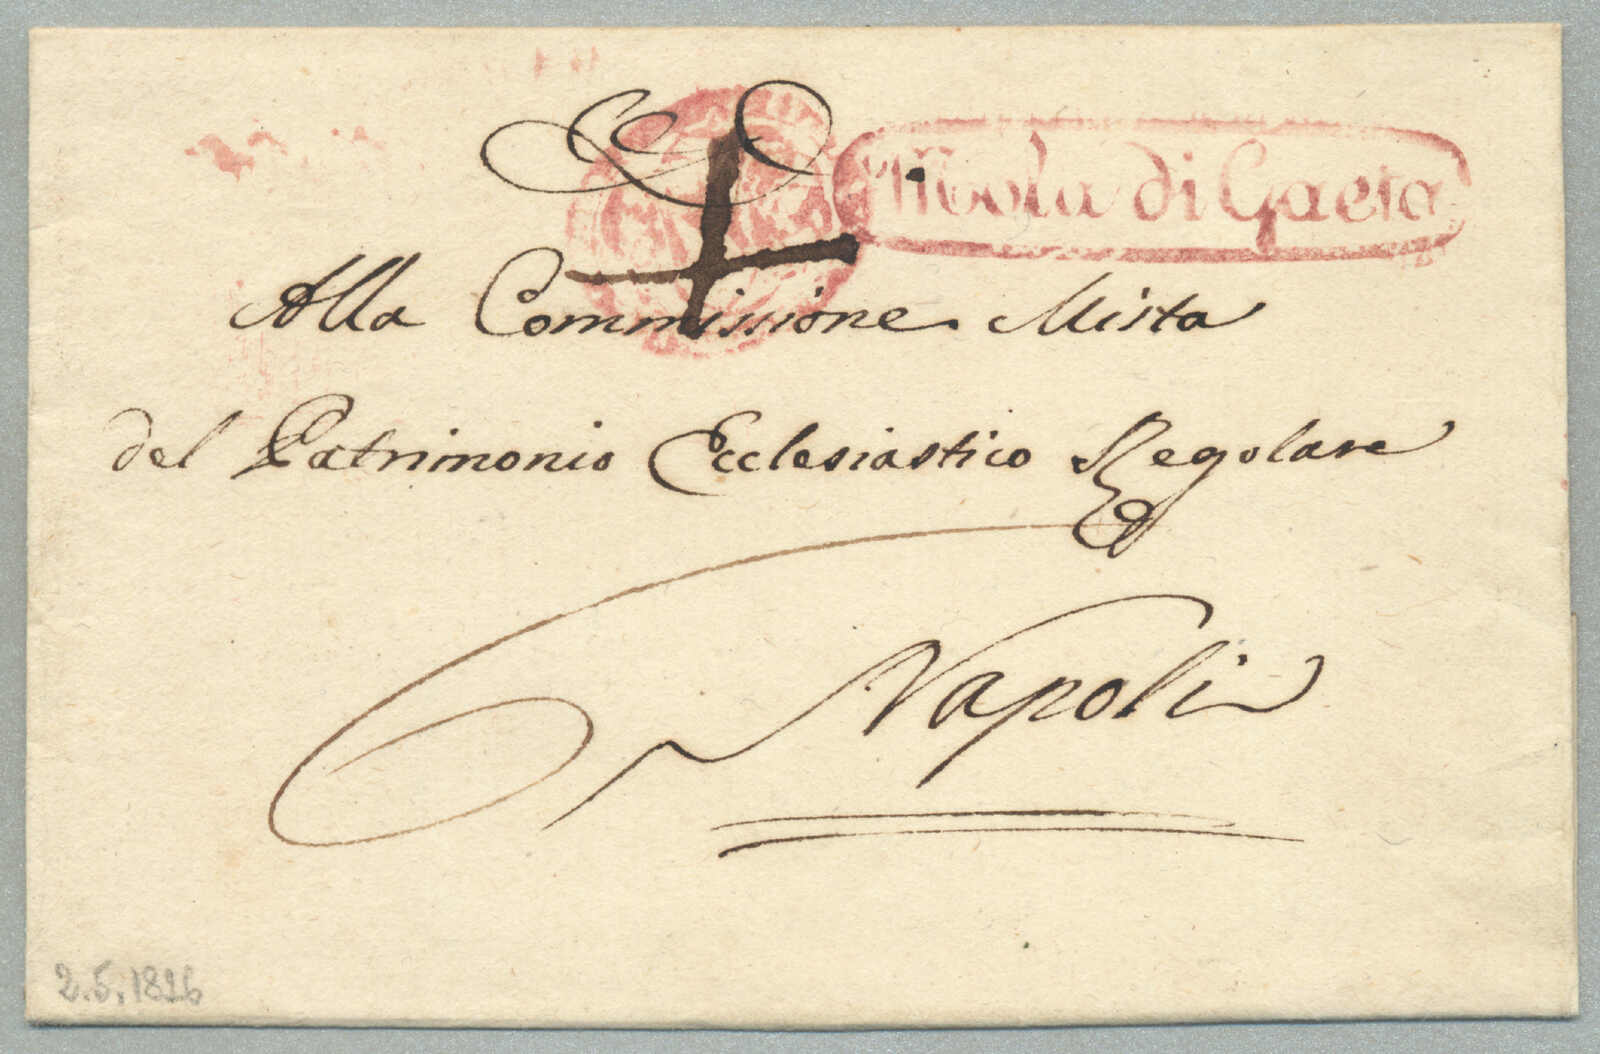 Mola di Gaeta
Alla Commissione Mista
del Patrimonio Ecclesiastico Regolare
Napoli
2.5.1826